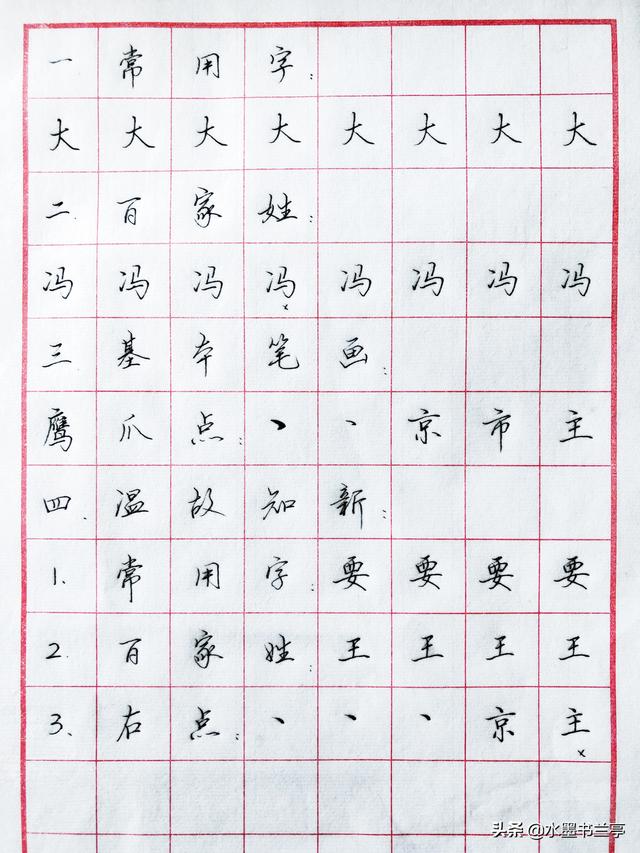 一 常用字:
大大大大大大大大
二. 百家姓:
冯冯冯冯冯冯冯冯
×
三 基本笔画:
鹰爪点: 丶 丶 京市主
四. 温故知新:
1. 常用字: 要要要要
2. 百家姓: 王王王王
3. 右点: 丶 丶 丶 京主
×
头条 @水墨书兰亭